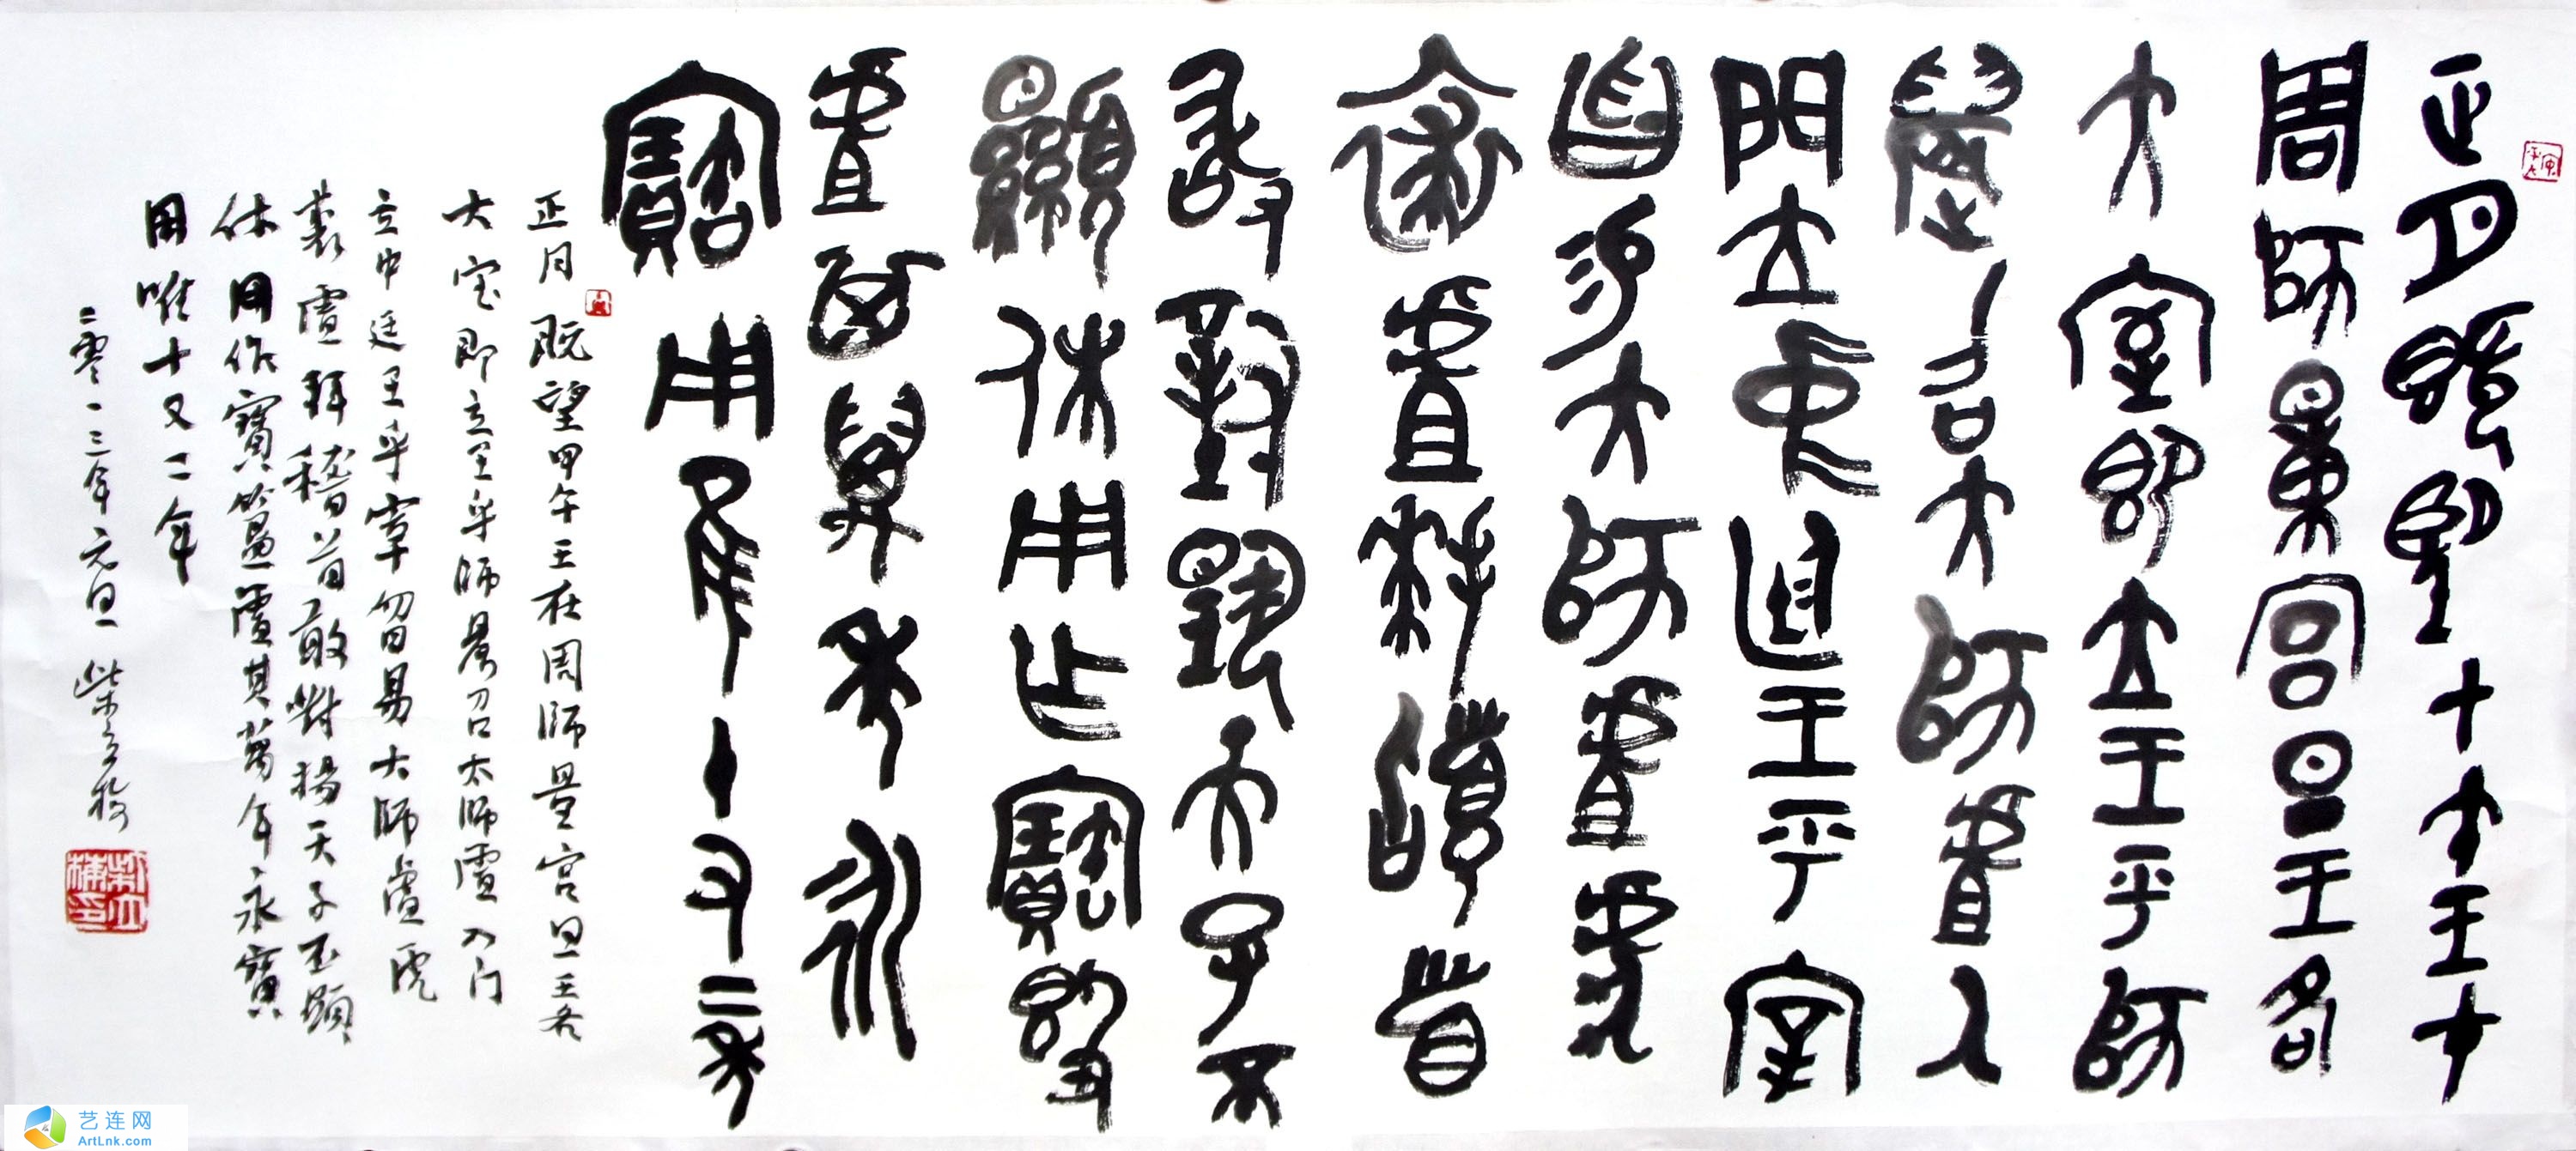 正月既望甲午王才
周師量宮旦王各
大室即立王乎師
晨召大師虘入
門立中廷王乎宰
曶易大師虘虎
裘虘拜稽首
敢對揚天子不
顯休用乍寶簋
虘其萬年永
寶用隹十又二年
正月既望甲午王在周師量宮旦王各
大室即立王乎師晨召太師虘入门
立中廷王乎宰曶易大師虘虎
裘虘拜稽首敢對揚天子丕顯
休用作寶簋虘其萬年永寶
用唯十又二年
二零一三年元旦 柴立梅
艺连网
ArtLnk.com